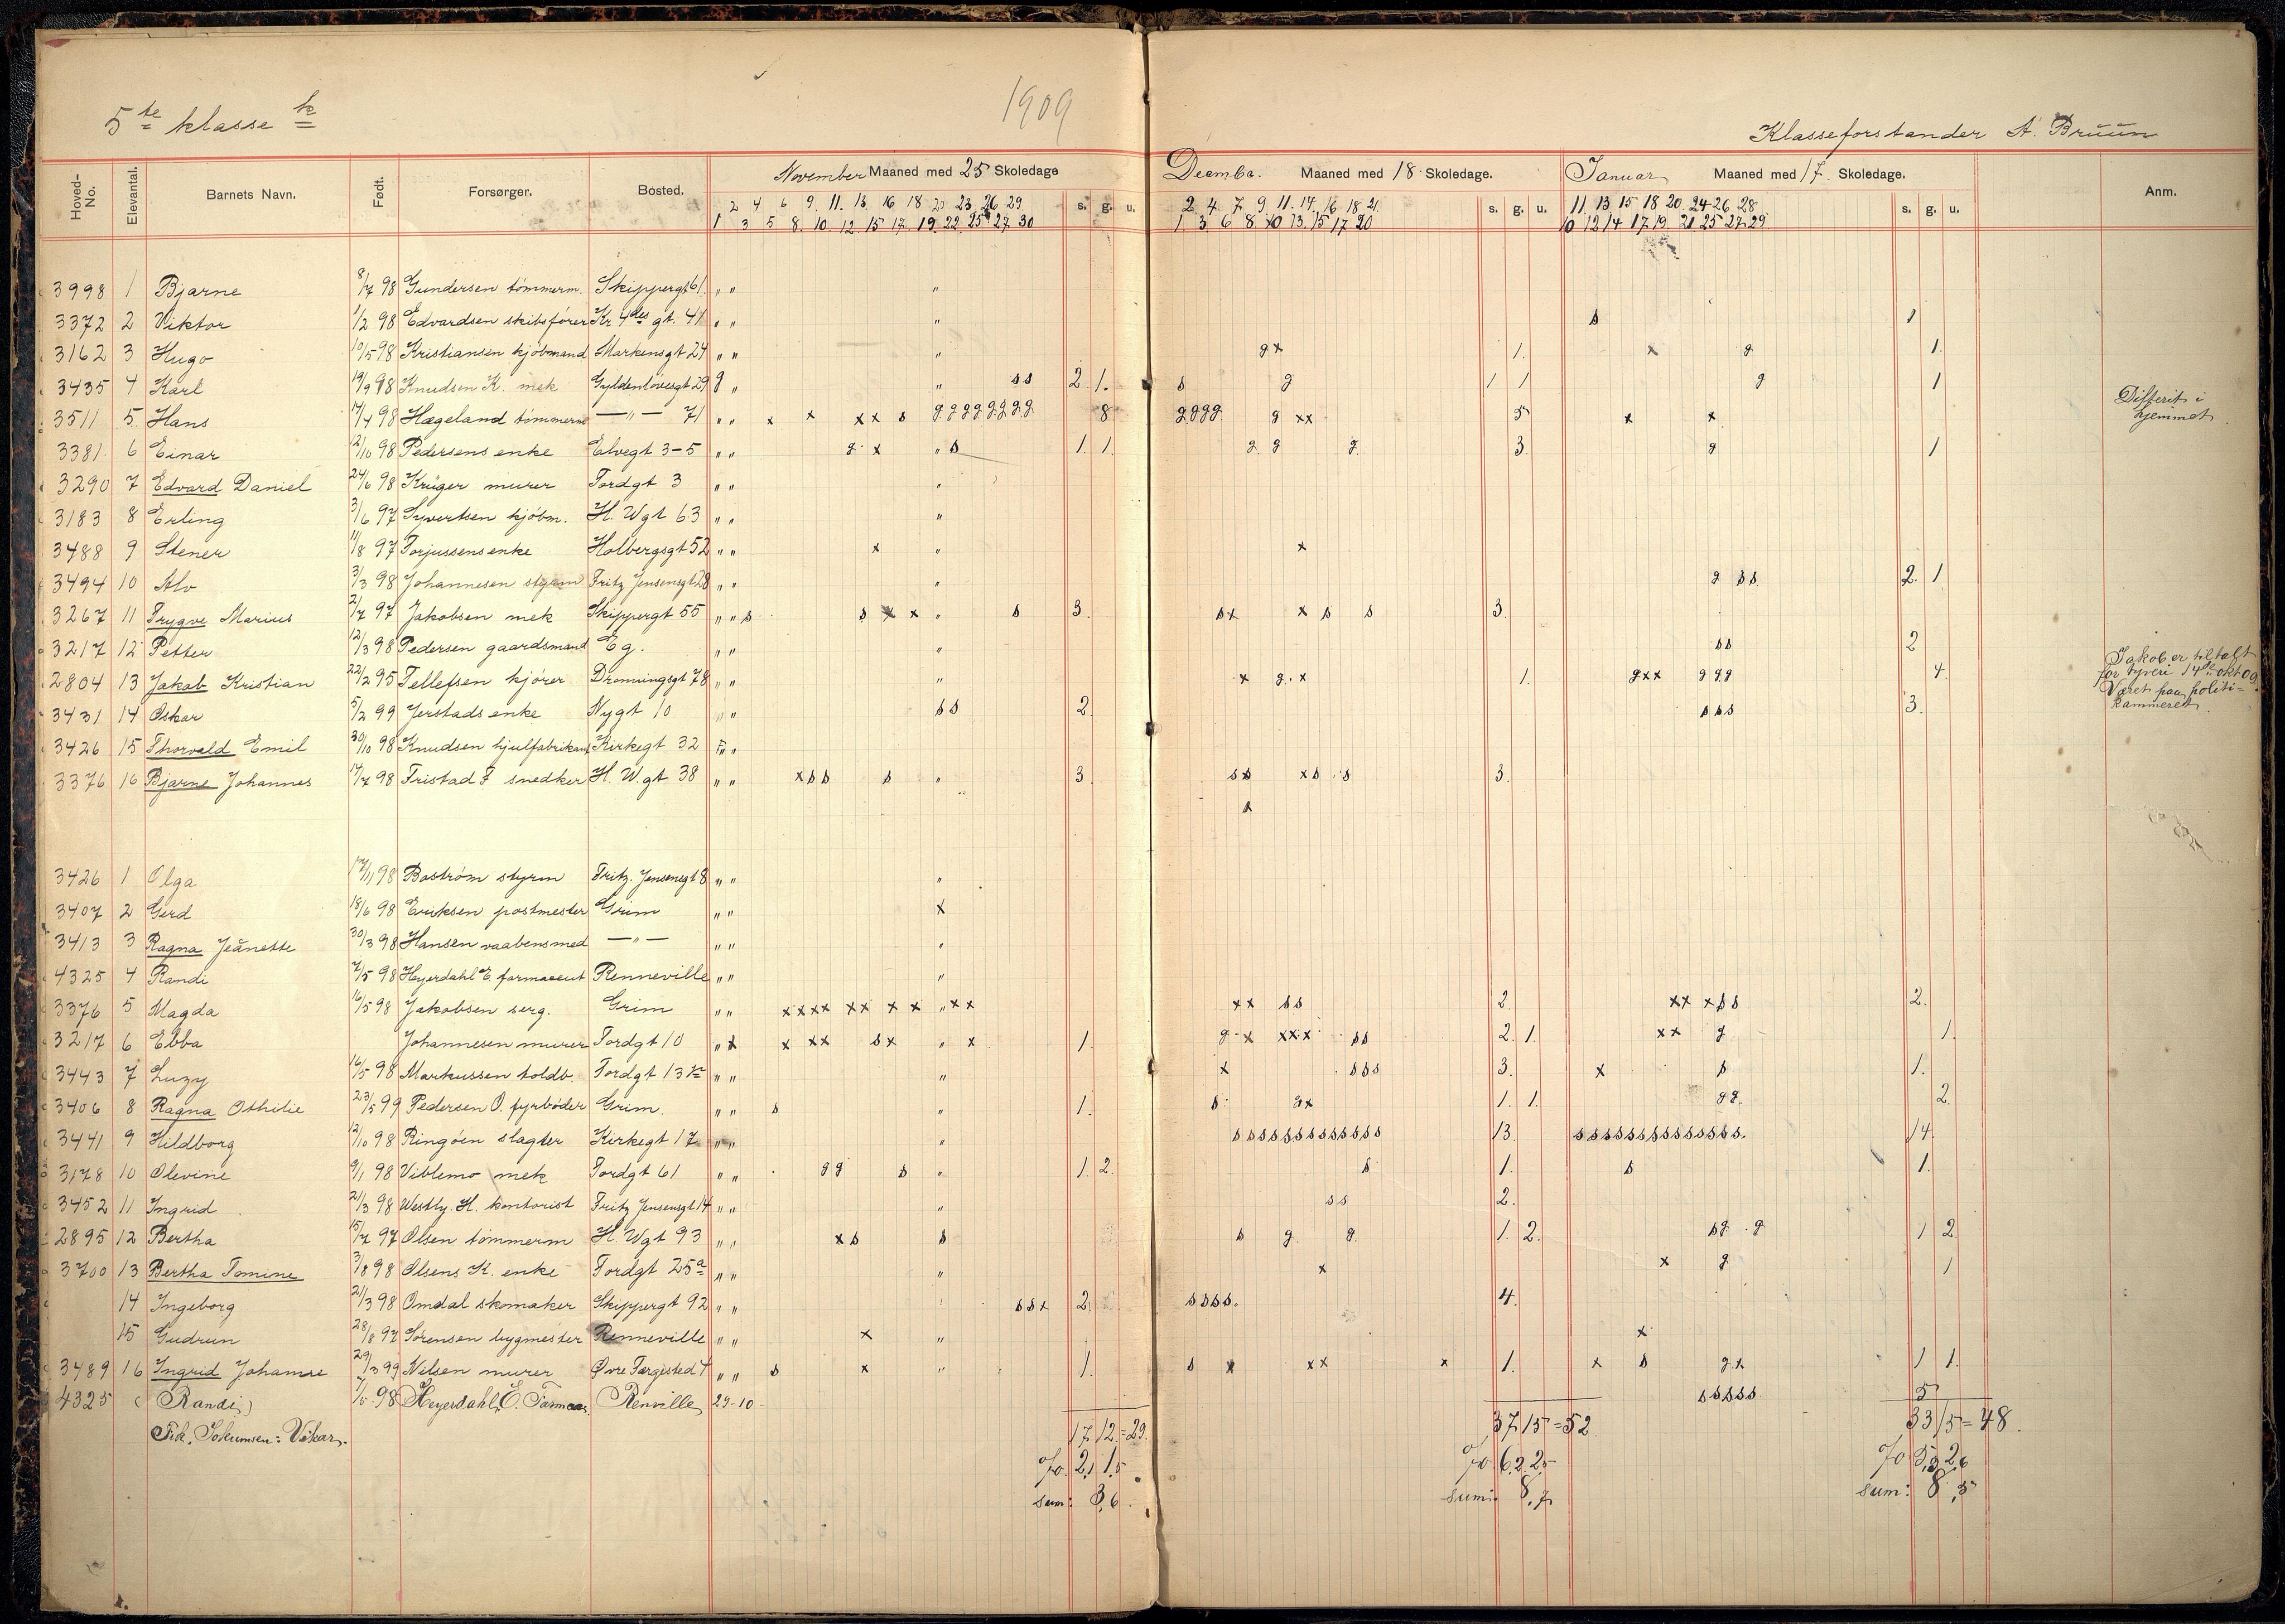 1909
5te klasse k
Klasseforstander A. Bruun
Hoved-No. Elevantal. Barnets Navn. Født. Forsørger. Bosted. November Maaned med 25 Skoledage s. g. u. Maaned med 18 Skoledage. s. g. u. Januar Maaned med 17 Skoledage. s. g. u. Anm.
2 4 6 9. 11. 13 16 18 20 23 26 29 2 4. 7 9 11. 14. 16 18 21. 11. 13 15 18 20 24 26 28
1 3 5 8. 10. 12 15 17. 19. 22. 25 27 30 1. 3 6 8 10 13. 15 17 20 10 12 14 17 19. 21 25 27 29
3998 1 Bjarne 8/7 98 Gundersen tömmerm. Skippergt 61. " " "
3372 2 Viktor 1/2 98 Edvardsen skibsfører Kr 4des gt. 41 " " " s 1
3162 3 Hugo 10/5 98 Kristiansen kjöbmand Markensgt 24 " " " g x 1. x g 1.
3435 4 Karl 19/9 98 Knudsen K. mek Gyldenlövesgt 29 g " " s s 2. 1. s g 1 1 g 1
3511 5 Hans 14/4 98 Hægeland tömmerm — " — 71 " " x x x x s g g g g g g g g 8 g g g g g x x 5 x x Difterit i hjemmet.
3381 6 Einar 12/10 98 Pedersens enke Elvegt 3-5 " " g x " s 1. 1. g g g 3. g 1
3290 7 Edvard Daniel 24/6 98 Krüger murer Tordgt 3 " " "
3183 8 Erling 3/6 97 Syvertsen kjöbm. H. Wgt 63 " " "
3488 9 Stener 11/8 97 Torjussens enke Holbergsgt 52 " " x " x
3494 10 Alv 3/3 98 Johannesen styrm Fritz Jensensgt 28 " " " g s s 2. 1
3267 11 Trygve Marius 2/7 97 Jakobsen mek Skippergt 55 " " s s x x " s 3. s x x s s 3.
3217 12 Petter 12/3 98 Pedersen gaardsmand Eg. " " " s s 2
2804 13 Jakob Kristian 22/2 95 Tellefsen kjører Dronningsgt 78 " " " x g. x 1. g x x g g g 4. Jakob er tiltalt for tyveri 14de okt 09. Været paa politikammeret.
3431 14 Oskar 5/2 99 Jerstads enke Nygt 10 " " s s 2. s s s 3.
3426 15 Thorvald Emil 30/10 98 Knudsen hjulfabrikant Kirkegt 32 " "
3376 16 Bjarne Johannes 14/7 98 Fristad F snedker H. Wgt 38 " " x s s s " 3. s s x s s 3.
s
3426 1 Olga 17/11 98 Boström styrm Fritz. Jensensgt 8 " " "
3407 2 Gerd 18/6 98 Eriksen postmester Grim " " x
3413 3 Ragna Jeanette 30/3 98 Hansen vaabensmed — " — " " "
4325 4 Randi 7/5 98 Heyerdahl E farmaceut Renneville " " "
3376 5 Magda 16/5 98 Jakobsen serg. Grim " " x x x x x x x x " x x x x s s 2 x x x s s 2.
3217 6 Ebba Johannesen murer Tordgt 10 " x x x x s x " x 1. g x x x x s s 2. 1. x x g 1.
3443 7 Luzy 16/5 98 Markussen toldb. Tordgt 13 " " " x s s s 3. x s 1.
3406 8 Ragna Othilie 23/5 99 Pedersen O. fyrböder Grim " " s " 1. s g x 1. 1. g g 2.
3441 9 Hildborg 12/10 98 Ringöen slagter Kirkegt 17 " " " s s s s s s s s s s s s s 13. s s s s s s s s s s s s s s. 14.
3178 10 Olevine 9/1 98 Viblemo mek Tordgt 61 " " g g s " 1. 2. s 1. s 1.
3452 11 Ingrid 21/3 98 Westly. H. kontorist Fritz Jensensgt 14 " " " s s 2.
2895 12 Bertha 15/7 97 Olsen tömmerm H. Wgt 93 " " x s s s g g 1. 2. s g g 1 2
3700 13 Bertha Tomine 3/8 98 Olsens K. enke Tordgt 25a " " " x x g 1
14 Ingeborg 21/3 98 Omdal skomaker Skippergt 92 " " s s x 2. s s s s. 4.
15 Gudrun 28/8 97 Sörensen bygmester Renneville " " x " x
3489 16 Ingrid 29/3 99 Nilsen murer Øvre Færgested 4 " " s x " 1. s x x x x 1. x s g x 1 1.
4325 (Randi) 7/5 98 Heyerdahl, E. Renville 29-10 s s s s s 5
Frk. Vikar. 17. 12. = 29. 37. 15 = 52 33 15 = 48.
% 2,1 1,5 % 6,2 2,5 % 5,9 2,6
sum: 3,6. sum: 8,7 sum: 8,5